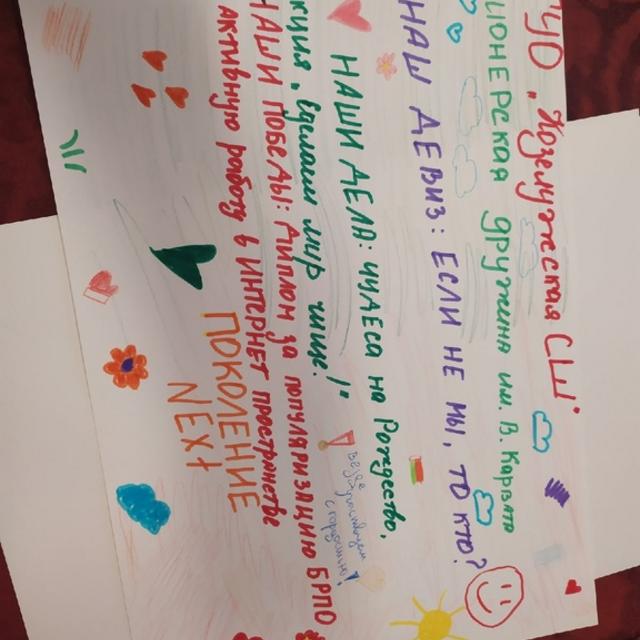 УО „Козлужская СШ"
ПИОНЕРСКАЯ дружина им. В. Корвято
НАШ ДЕВИЗ: ЕСЛИ НЕ МЫ, ТО КТО?
НАШИ ДЕЛА: ЧУДЕСА на Рождество,
акция „Сделаем мир чище!"
НАШИ ПОБЕДЫ: Диплом за популяризацию БРПО
активную работу в ИНТЕРНЕТ пространстве
ПОКОЛЕНИЕ
NEXT
с гордостью!